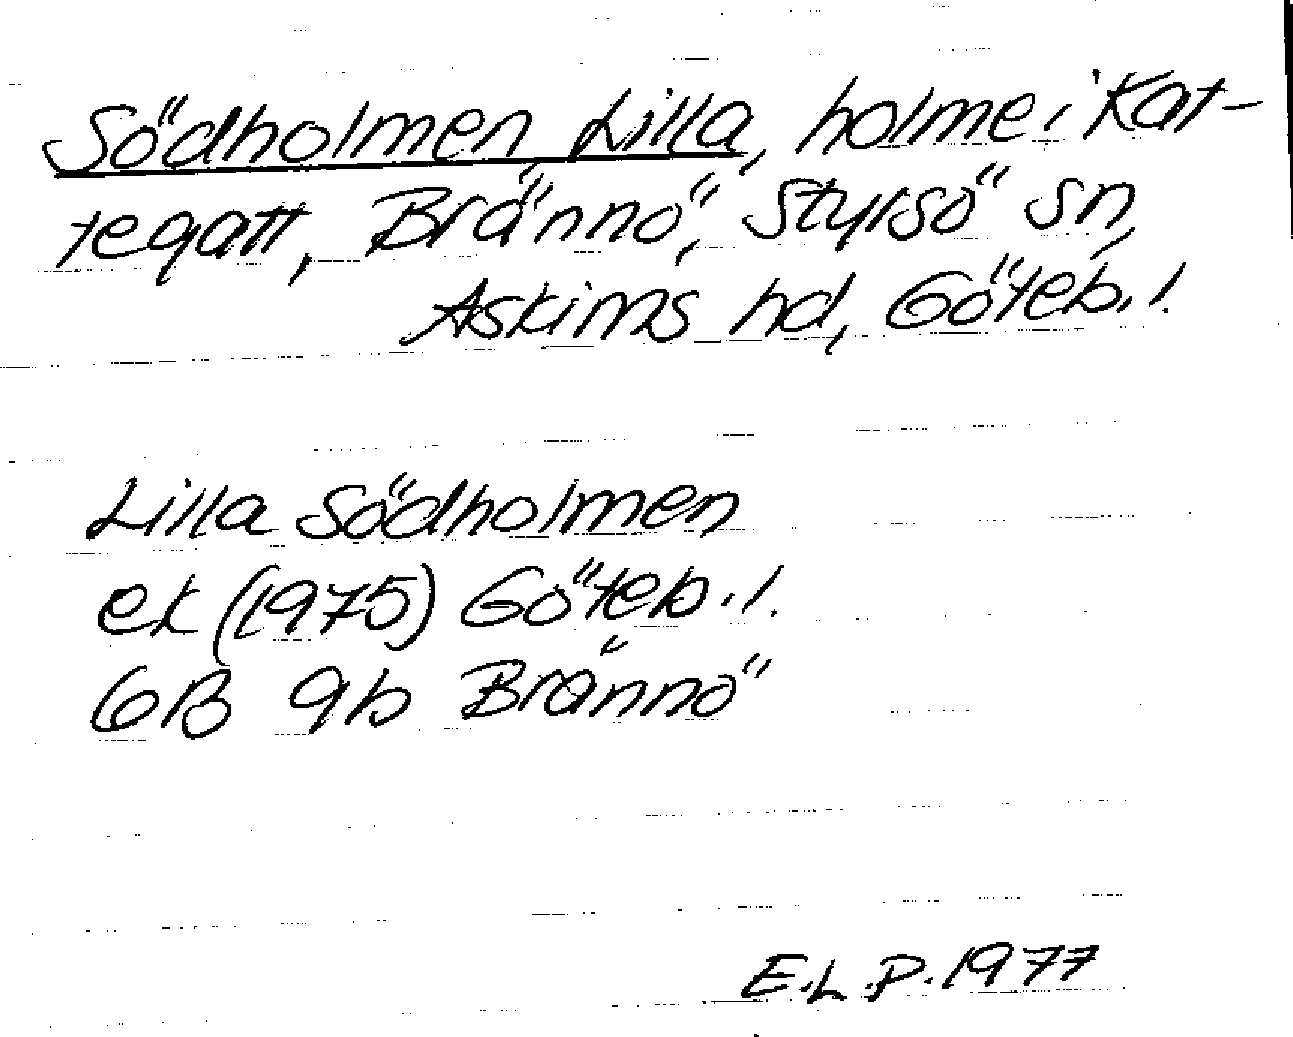 Södholmen, Lilla, holme i Kat-
tegatt, Brännö, Styrsö sn,
Askims hd, Göteb. l.
Lilla Södholmen
ek (1975) Göteb. l.
6B 9b Brännö
E.L.P. 1977